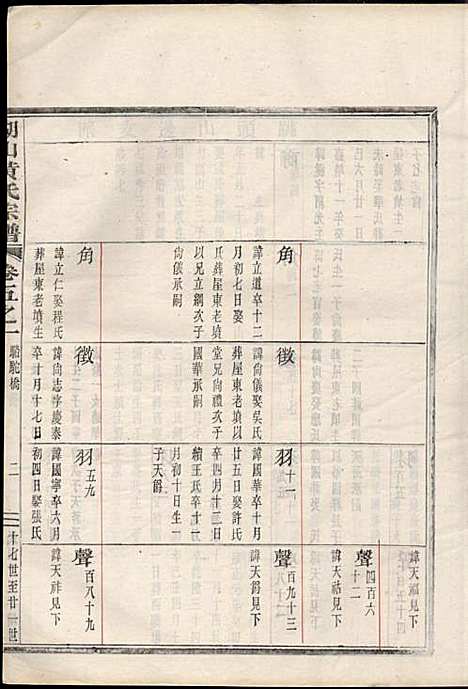 角
諱立道卒十二
月初七日娶
以兄立綱次子
尙儀承嗣
角
諱立仁娶程氏
葬屋東老墳生
徵
諱尙儀娶吳氏
葬屋東老墳以
堂兄尙禮次子
國華承嗣
徵
諱尙志字慶泰
卒十月十七日
羽 十一
諱國華卒十月
廿五日娶許氏
卒四月十三日
續王氏卒十一
月初十日生一
子天爵
羽 五九
諱國寧卒六月
初四日娶張氏
諱天瑞見下
聲 四百六十二
諱天祜見下
聲 百九十三
諱天爵見下
聲 百八十九
諱天祚見下
山黃氏宗譜
卷五之一
駱駝橋
二
十七世至廿一世